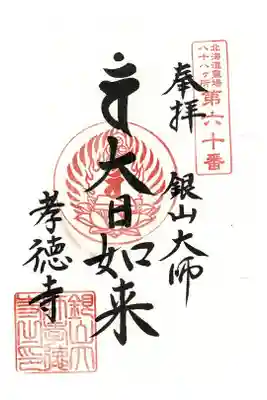 北海道霊場
八十八ヶ所
第六十番
奉拝
銀山大師
大日如来
孝徳寺